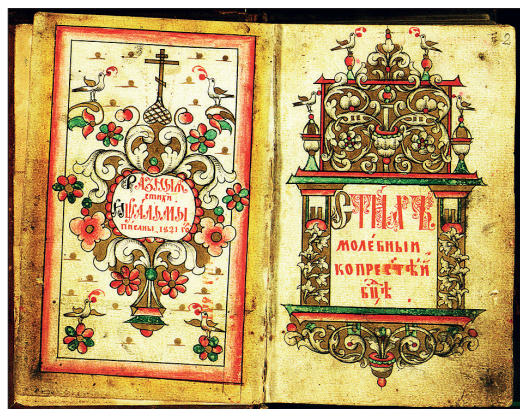 2
Разныѧ
стихи
Псальмы
писаны. 1821 го
Стихъ
молебныи
копрестѣй
бцѣ